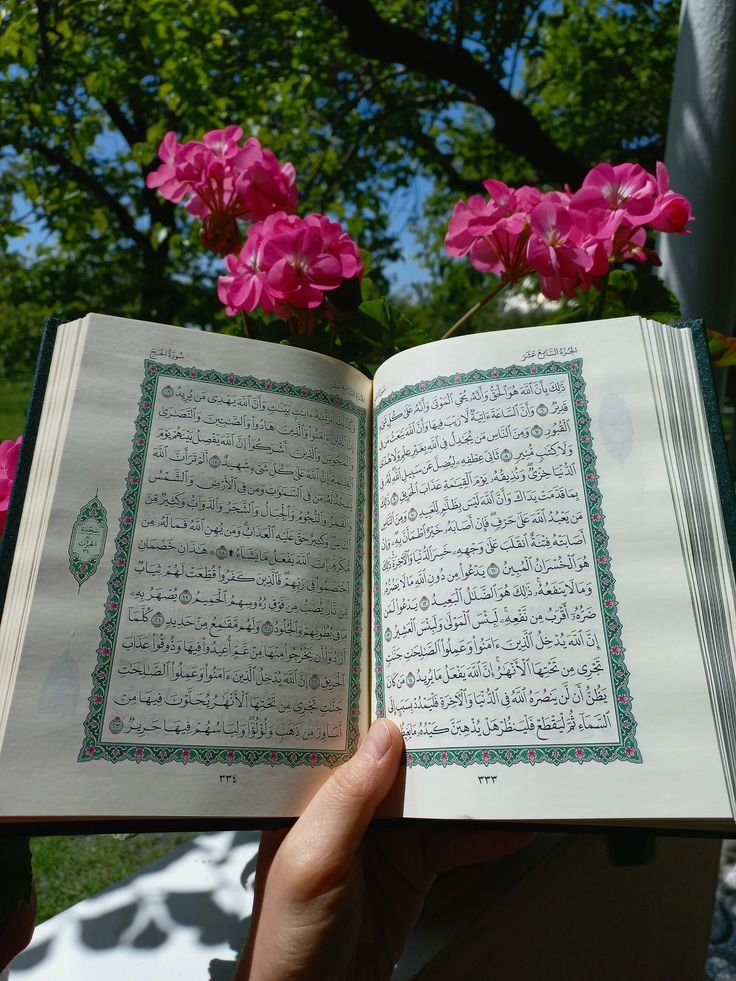 الجزء السابع عشر
ذَٰلِكَ بِأَنَّ ٱللَّهَ هُوَ ٱلْحَقُّ وَأَنَّهُۥ يُحْىِ ٱلْمَوْتَىٰ وَأَنَّهُۥ عَلَىٰ كُلِّ شَىْءٍ
قَدِيرٌ ٦ وَأَنَّ ٱلسَّاعَةَ ءَاتِيَةٌ لَّا رَيْبَ فِيهَا وَأَنَّ ٱللَّهَ يَبْعَثُ مَن فِى
ٱلْقُبُورِ ٧ وَمِنَ ٱلنَّاسِ مَن يُجَٰدِلُ فِى ٱللَّهِ بِغَيْرِ عِلْمٍ وَلَا هُدًى
وَلَا كِتَٰبٍ مُّنِيرٍ ٨ ثَانِىَ عِطْفِهِۦ لِيُضِلَّ عَن سَبِيلِ ٱللَّهِ لَهُۥ فِى
ٱلدُّنْيَا خِزْىٌ وَنُذِيقُهُۥ يَوْمَ ٱلْقِيَٰمَةِ عَذَابَ ٱلْحَرِيقِ ٩ ذَٰلِكَ
بِمَا قَدَّمَتْ يَدَاكَ وَأَنَّ ٱللَّهَ لَيْسَ بِظَلَّٰمٍ لِّلْعَبِيدِ ١٠ وَمِنَ ٱلنَّاسِ
مَن يَعْبُدُ ٱللَّهَ عَلَىٰ حَرْفٍ فَإِنْ أَصَابَهُۥ خَيْرٌ ٱطْمَأَنَّ بِهِۦ وَإِنْ
أَصَابَتْهُ فِتْنَةٌ ٱنقَلَبَ عَلَىٰ وَجْهِهِۦ خَسِرَ ٱلدُّنْيَا وَٱلْءَاخِرَةَ ذَٰلِكَ
هُوَ ٱلْخُسْرَانُ ٱلْمُبِينُ ١١ يَدْعُوا۟ مِن دُونِ ٱللَّهِ مَا لَا يَضُرُّهُۥ
وَمَا لَا يَنفَعُهُۥ ذَٰلِكَ هُوَ ٱلضَّلَٰلُ ٱلْبَعِيدُ ١٢ يَدْعُوا۟ لَمَن
ضَرُّهُۥٓ أَقْرَبُ مِن نَّفْعِهِۦ لَبِئْسَ ٱلْمَوْلَىٰ وَلَبِئْسَ ٱلْعَشِيرُ ١٣
إِنَّ ٱللَّهَ يُدْخِلُ ٱلَّذِينَ ءَامَنُوا۟ وَعَمِلُوا۟ ٱلصَّٰلِحَٰتِ جَنَّٰتٍ
تَجْرِى مِن تَحْتِهَا ٱلْأَنْهَٰرُ إِنَّ ٱللَّهَ يَفْعَلُ مَا يُرِيدُ ١٤ مَن كَانَ
يَظُنُّ أَن لَّن يَنصُرَهُ ٱللَّهُ فِى ٱلدُّنْيَا وَٱلْءَاخِرَةِ فَلْيَمْدُدْ بِسَبَبٍ إِلَى
ٱلسَّمَآءِ ثُمَّ لْيَقْطَعْ فَلْيَنظُرْ هَلْ يُذْهِبَنَّ كَيْدُهُۥ مَا يَغِيظُ
٣٣٣
سورة الحج
وَكَذَٰلِكَ أَنزَلْنَٰهُ ءَايَٰتٍۭ بَيِّنَٰتٍ وَأَنَّ ٱللَّهَ يَهْدِى مَن يُرِيدُ ١٦
إِنَّ ٱلَّذِينَ ءَامَنُوا۟ وَٱلَّذِينَ هَادُوا۟ وَٱلصَّٰبِـِٔينَ وَٱلنَّصَٰرَىٰ
وَٱلْمَجُوسَ وَٱلَّذِينَ أَشْرَكُوٓا۟ إِنَّ ٱللَّهَ يَفْصِلُ بَيْنَهُمْ يَوْمَ
ٱلْقِيَٰمَةِ إِنَّ ٱللَّهَ عَلَىٰ كُلِّ شَىْءٍ شَهِيدٌ ١٧ أَلَمْ تَرَ أَنَّ ٱللَّهَ
يَسْجُدُ لَهُۥ مَن فِى ٱلسَّمَٰوَٰتِ وَمَن فِى ٱلْأَرْضِ وَٱلشَّمْسُ
وَٱلْقَمَرُ وَٱلنُّجُومُ وَٱلْجِبَالُ وَٱلشَّجَرُ وَٱلدَّوَآبُّ وَكَثِيرٌ مِّنَ
ٱلنَّاسِ وَكَثِيرٌ حَقَّ عَلَيْهِ ٱلْعَذَابُ وَمَن يُهِنِ ٱللَّهُ فَمَا لَهُۥ مِن
مُّكْرِمٍ إِنَّ ٱللَّهَ يَفْعَلُ مَا يَشَآءُ ۩ ١٨ هَٰذَانِ خَصْمَانِ
ٱخْتَصَمُوا۟ فِى رَبِّهِمْ فَٱلَّذِينَ كَفَرُوا۟ قُطِّعَتْ لَهُمْ ثِيَابٌ
مِّن نَّارٍ يُصَبُّ مِن فَوْقِ رُءُوسِهِمُ ٱلْحَمِيمُ ١٩ يُصْهَرُ بِهِۦ
مَا فِى بُطُونِهِمْ وَٱلْجُلُودُ ٢٠ وَلَهُم مَّقَٰمِعُ مِنْ حَدِيدٍ ٢١ كُلَّمَآ
أَرَادُوٓا۟ أَن يَخْرُجُوا۟ مِنْهَا مِنْ غَمٍّ أُعِيدُوا۟ فِيهَا وَذُوقُوا۟ عَذَابَ
ٱلْحَرِيقِ ٢٢ إِنَّ ٱللَّهَ يُدْخِلُ ٱلَّذِينَ ءَامَنُوا۟ وَعَمِلُوا۟ ٱلصَّٰلِحَٰتِ
جَنَّٰتٍ تَجْرِى مِن تَحْتِهَا ٱلْأَنْهَٰرُ يُحَلَّوْنَ فِيهَا مِنْ
أَسَاوِرَ مِن ذَهَبٍ وَلُؤْلُؤًا وَلِبَاسُهُمْ فِيهَا حَرِيرٌ ٢٣
سجدة
٣٣٤